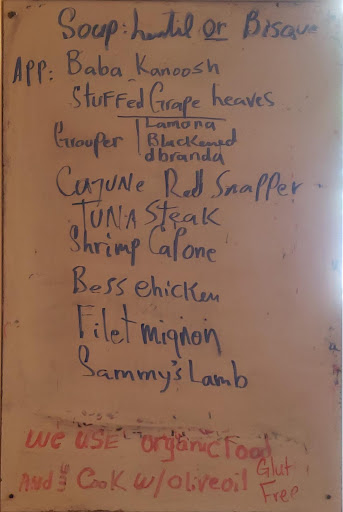 Soup: lentil or Bisque
APP: Baba Kanoosh
Stuffed Grape leaves
Grouper | Lamona
Blackened
dbranda
Cujune Red Snapper
TUNA Steak
Shrimp Capone
Bess chicken
Filet mignon
Sammy's Lamb
We USE organic Food
And we Cook w/olive oil
Glut
Free